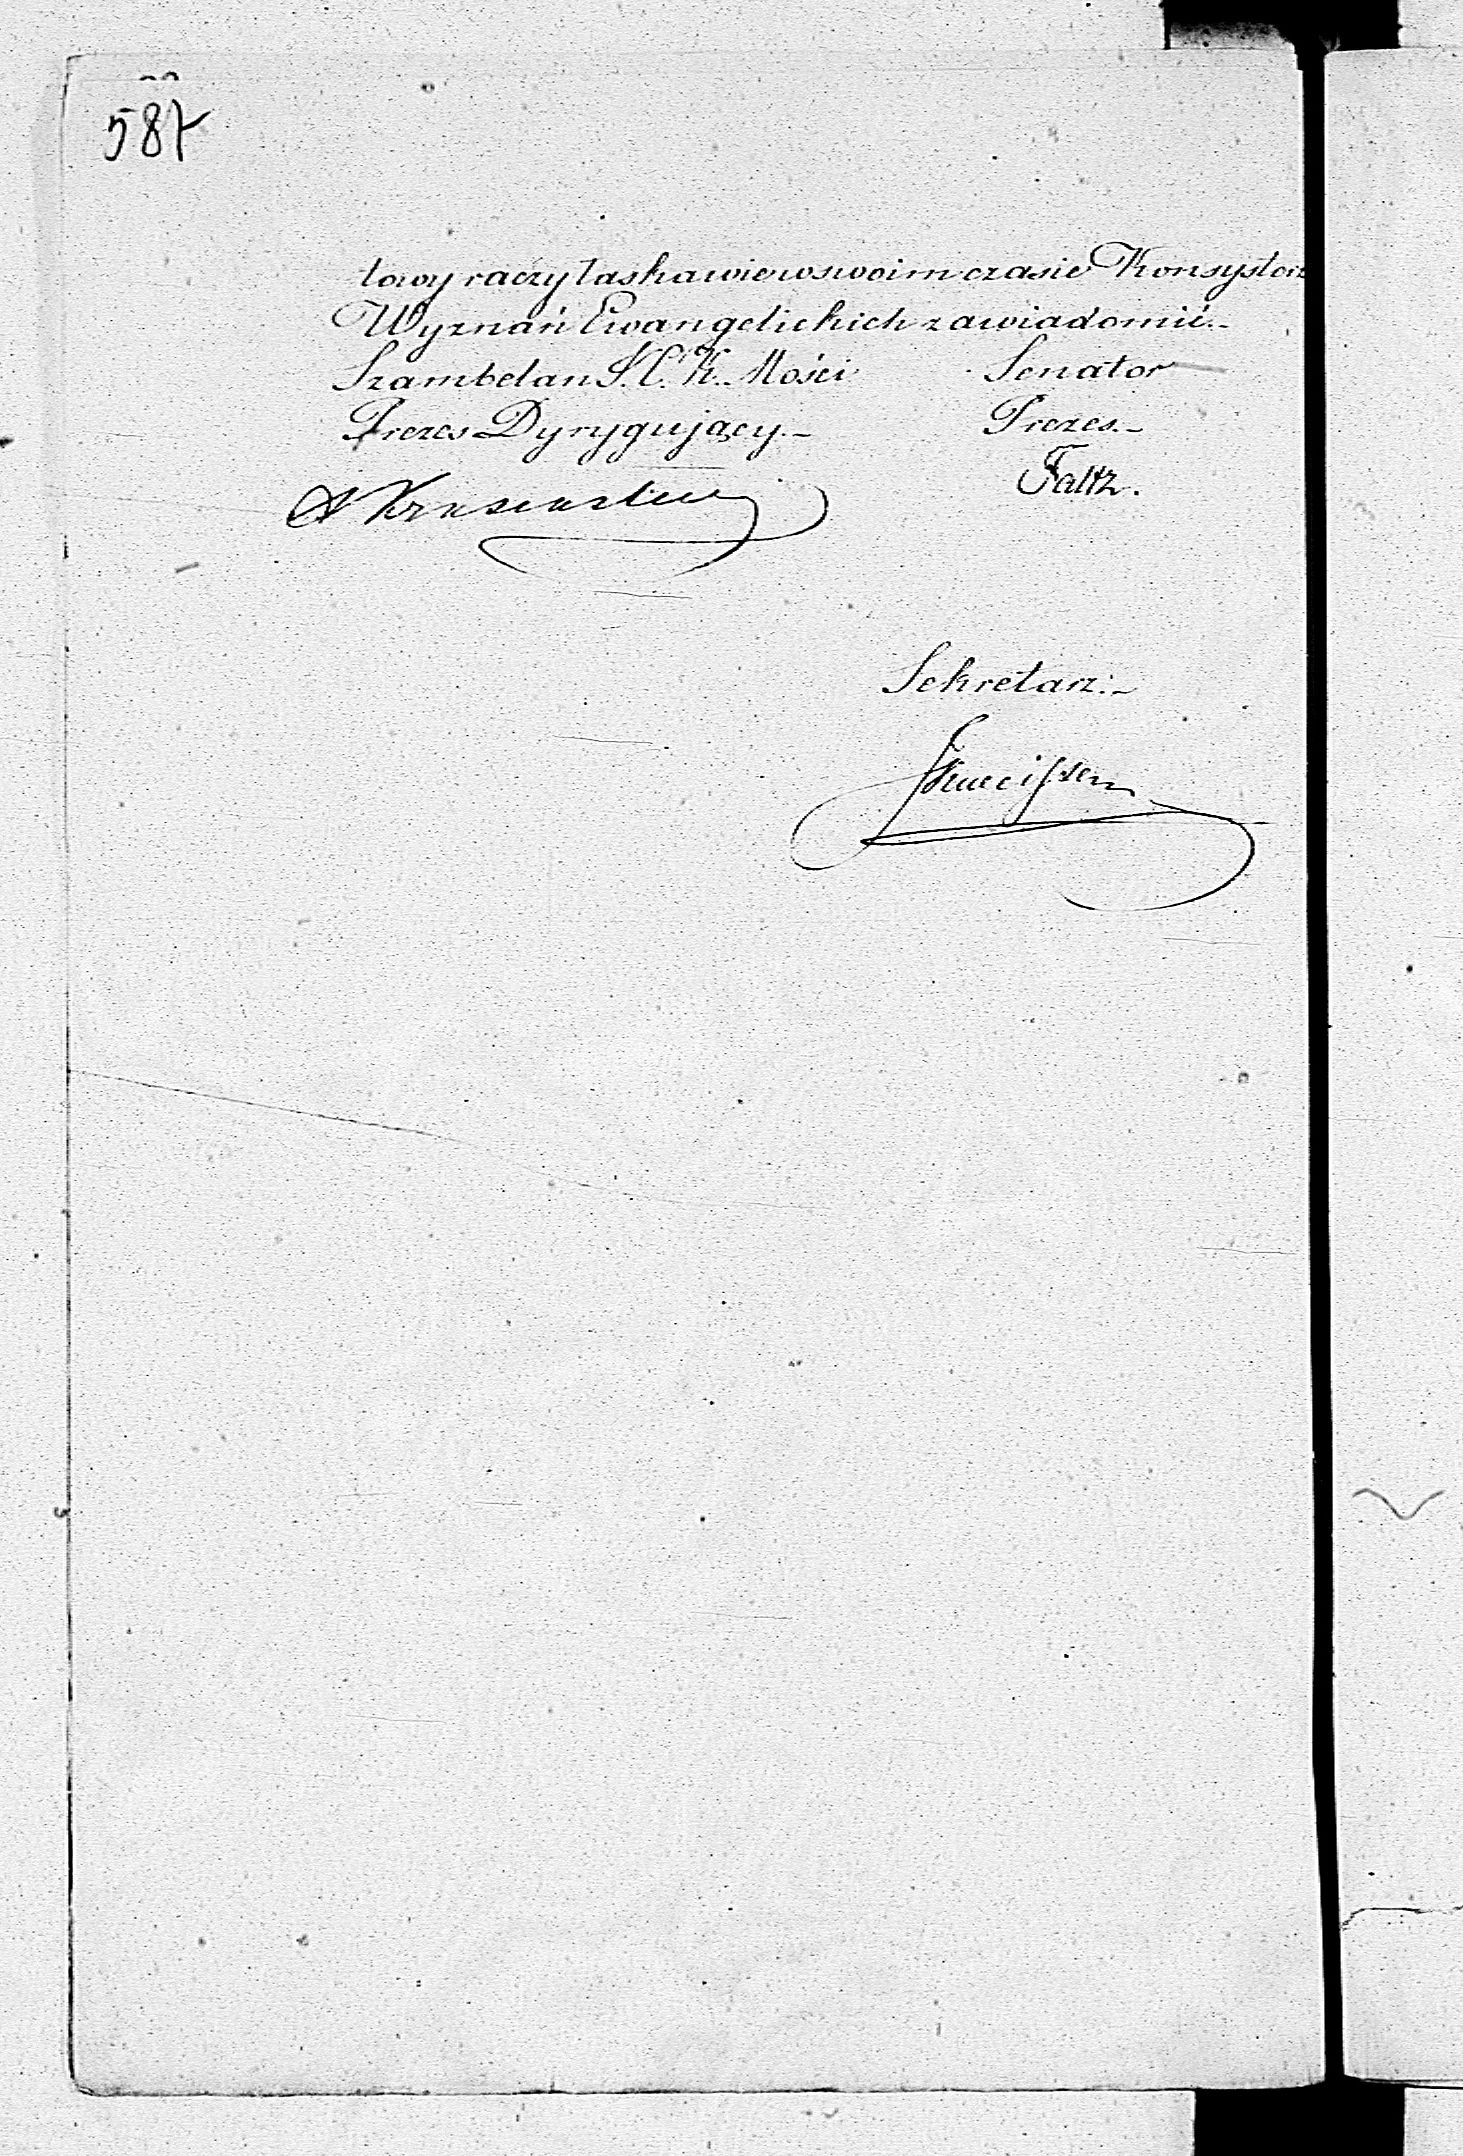 587
towy raczy łaskawie w swoim czasie Konsystorz
Wyznań Ewangelickich zawiadomić.-
Szambelan J. C. K. Mości Senator
Prezes Dyrygujący.- Prezes.-
Faltz.
Sekretarz.-